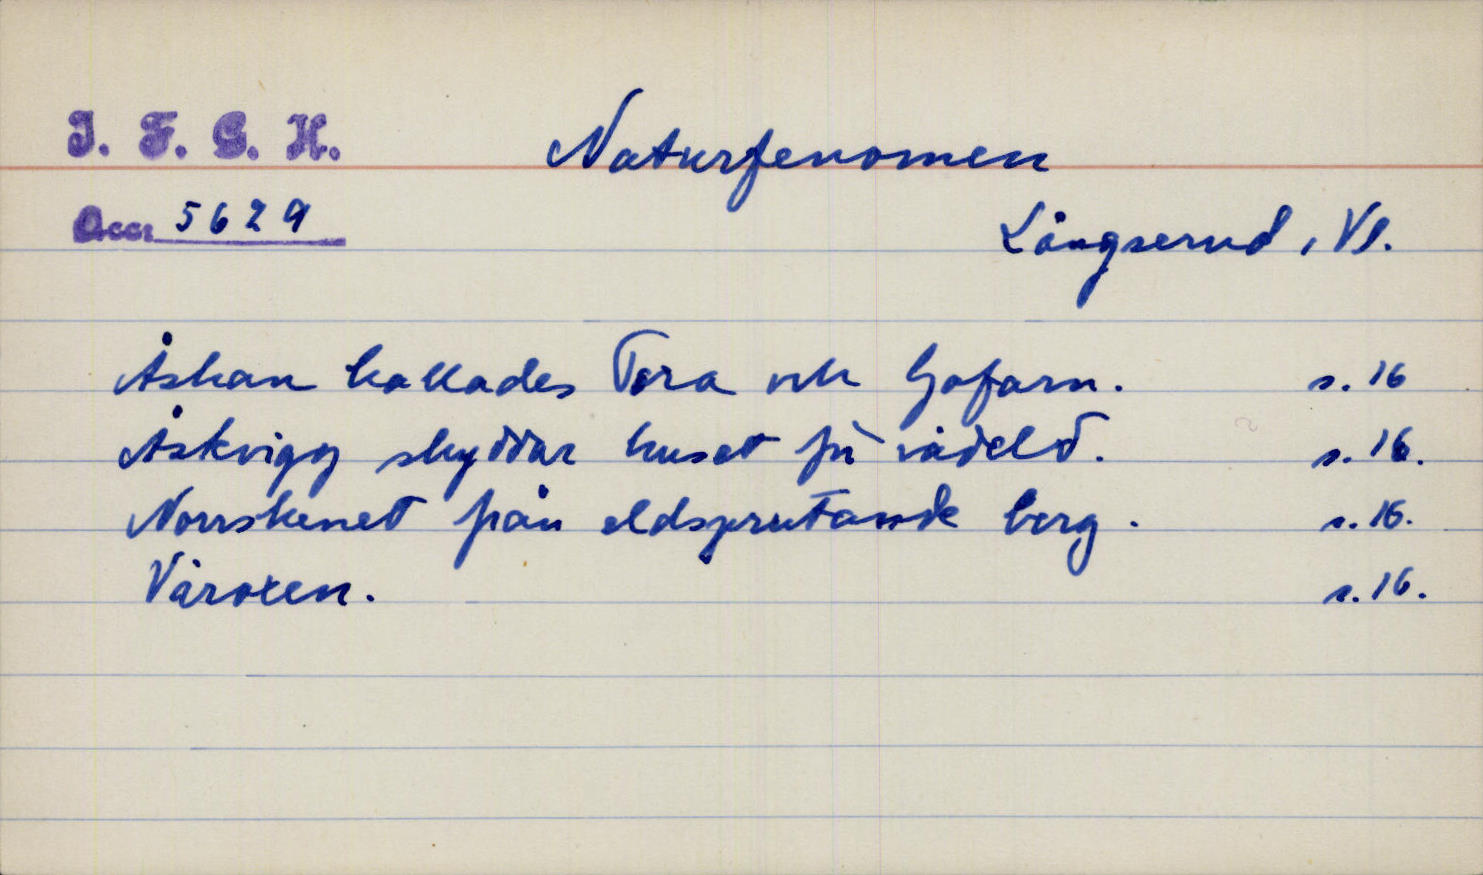 I. F. G. H.
Naturfenomen
Accr 5629
Långserud, Vl.
Åskan kallades Tora och Gofarn. s. 16
Åskvigg skyddar huset fr vådeld. s. 16.
Norrskenet från eldsprutande berg. s. 16.
Våroxen. s. 16.